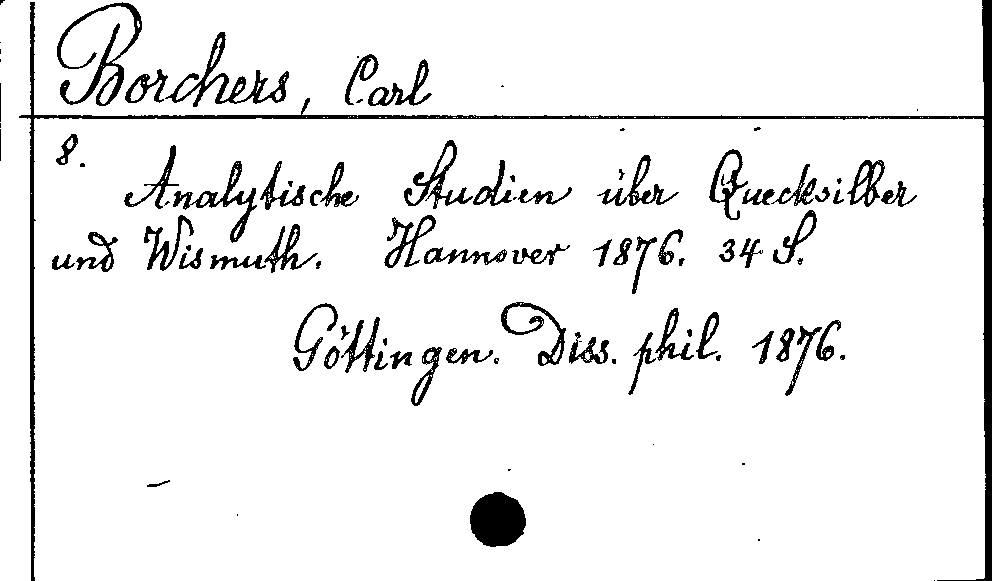 Borchers, Carl
8.
Analytische Studien über Quecksilber
und Wismuth. Hannover 1876. 34 S.
Göttingen. Diss. phil. 1876.